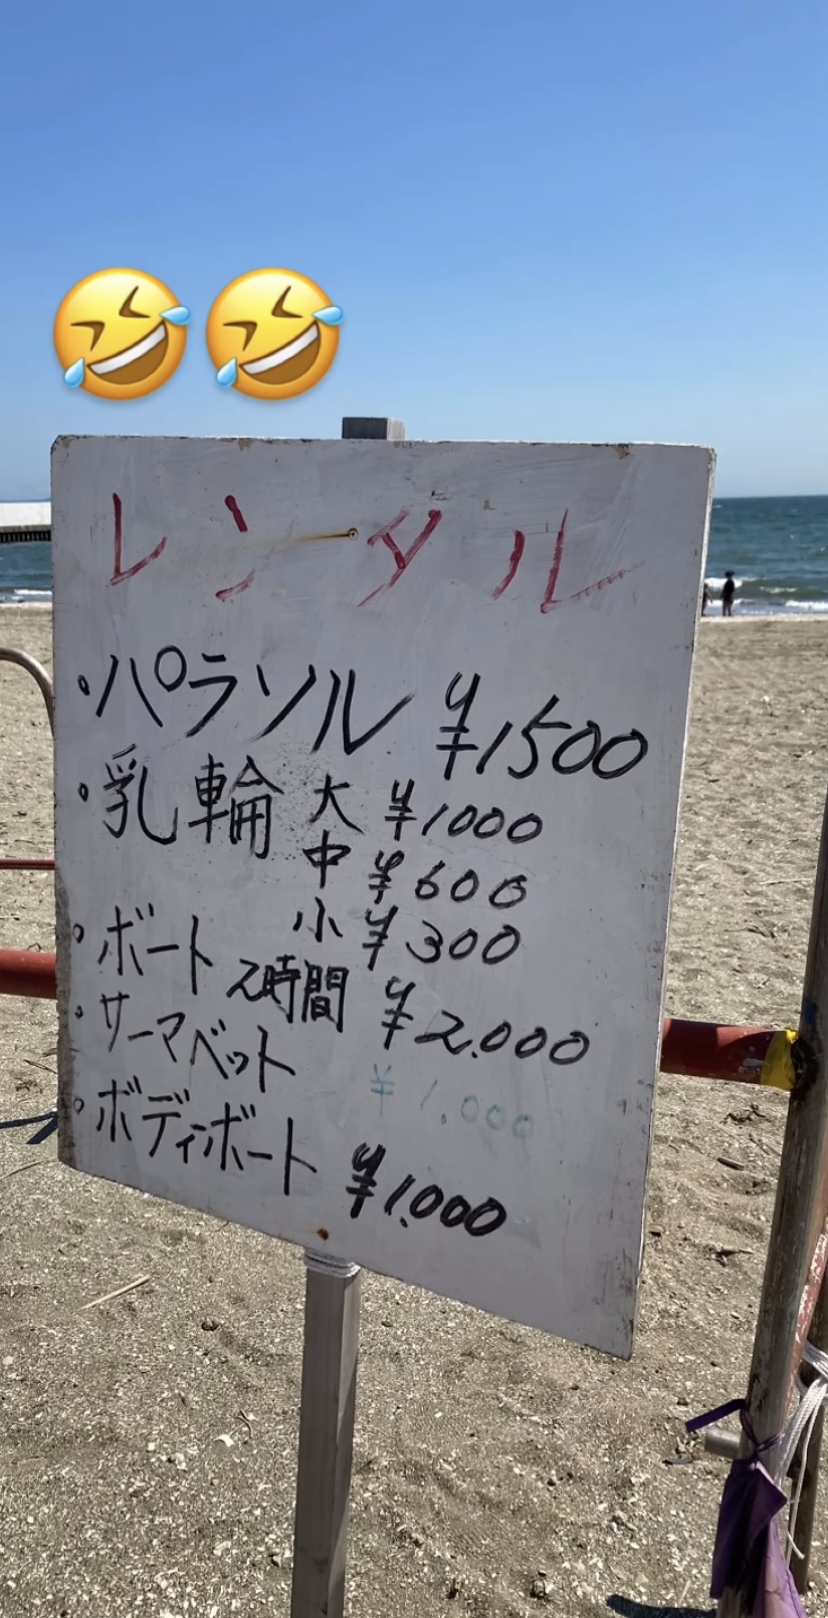 レンタル
・パラソル ¥1500
・乳輪 大 ¥1000
中 ¥600
小 ¥300
・ボート 2時間 ¥2.000
・サーマベット ¥1.000
・ボディボート ¥1.000